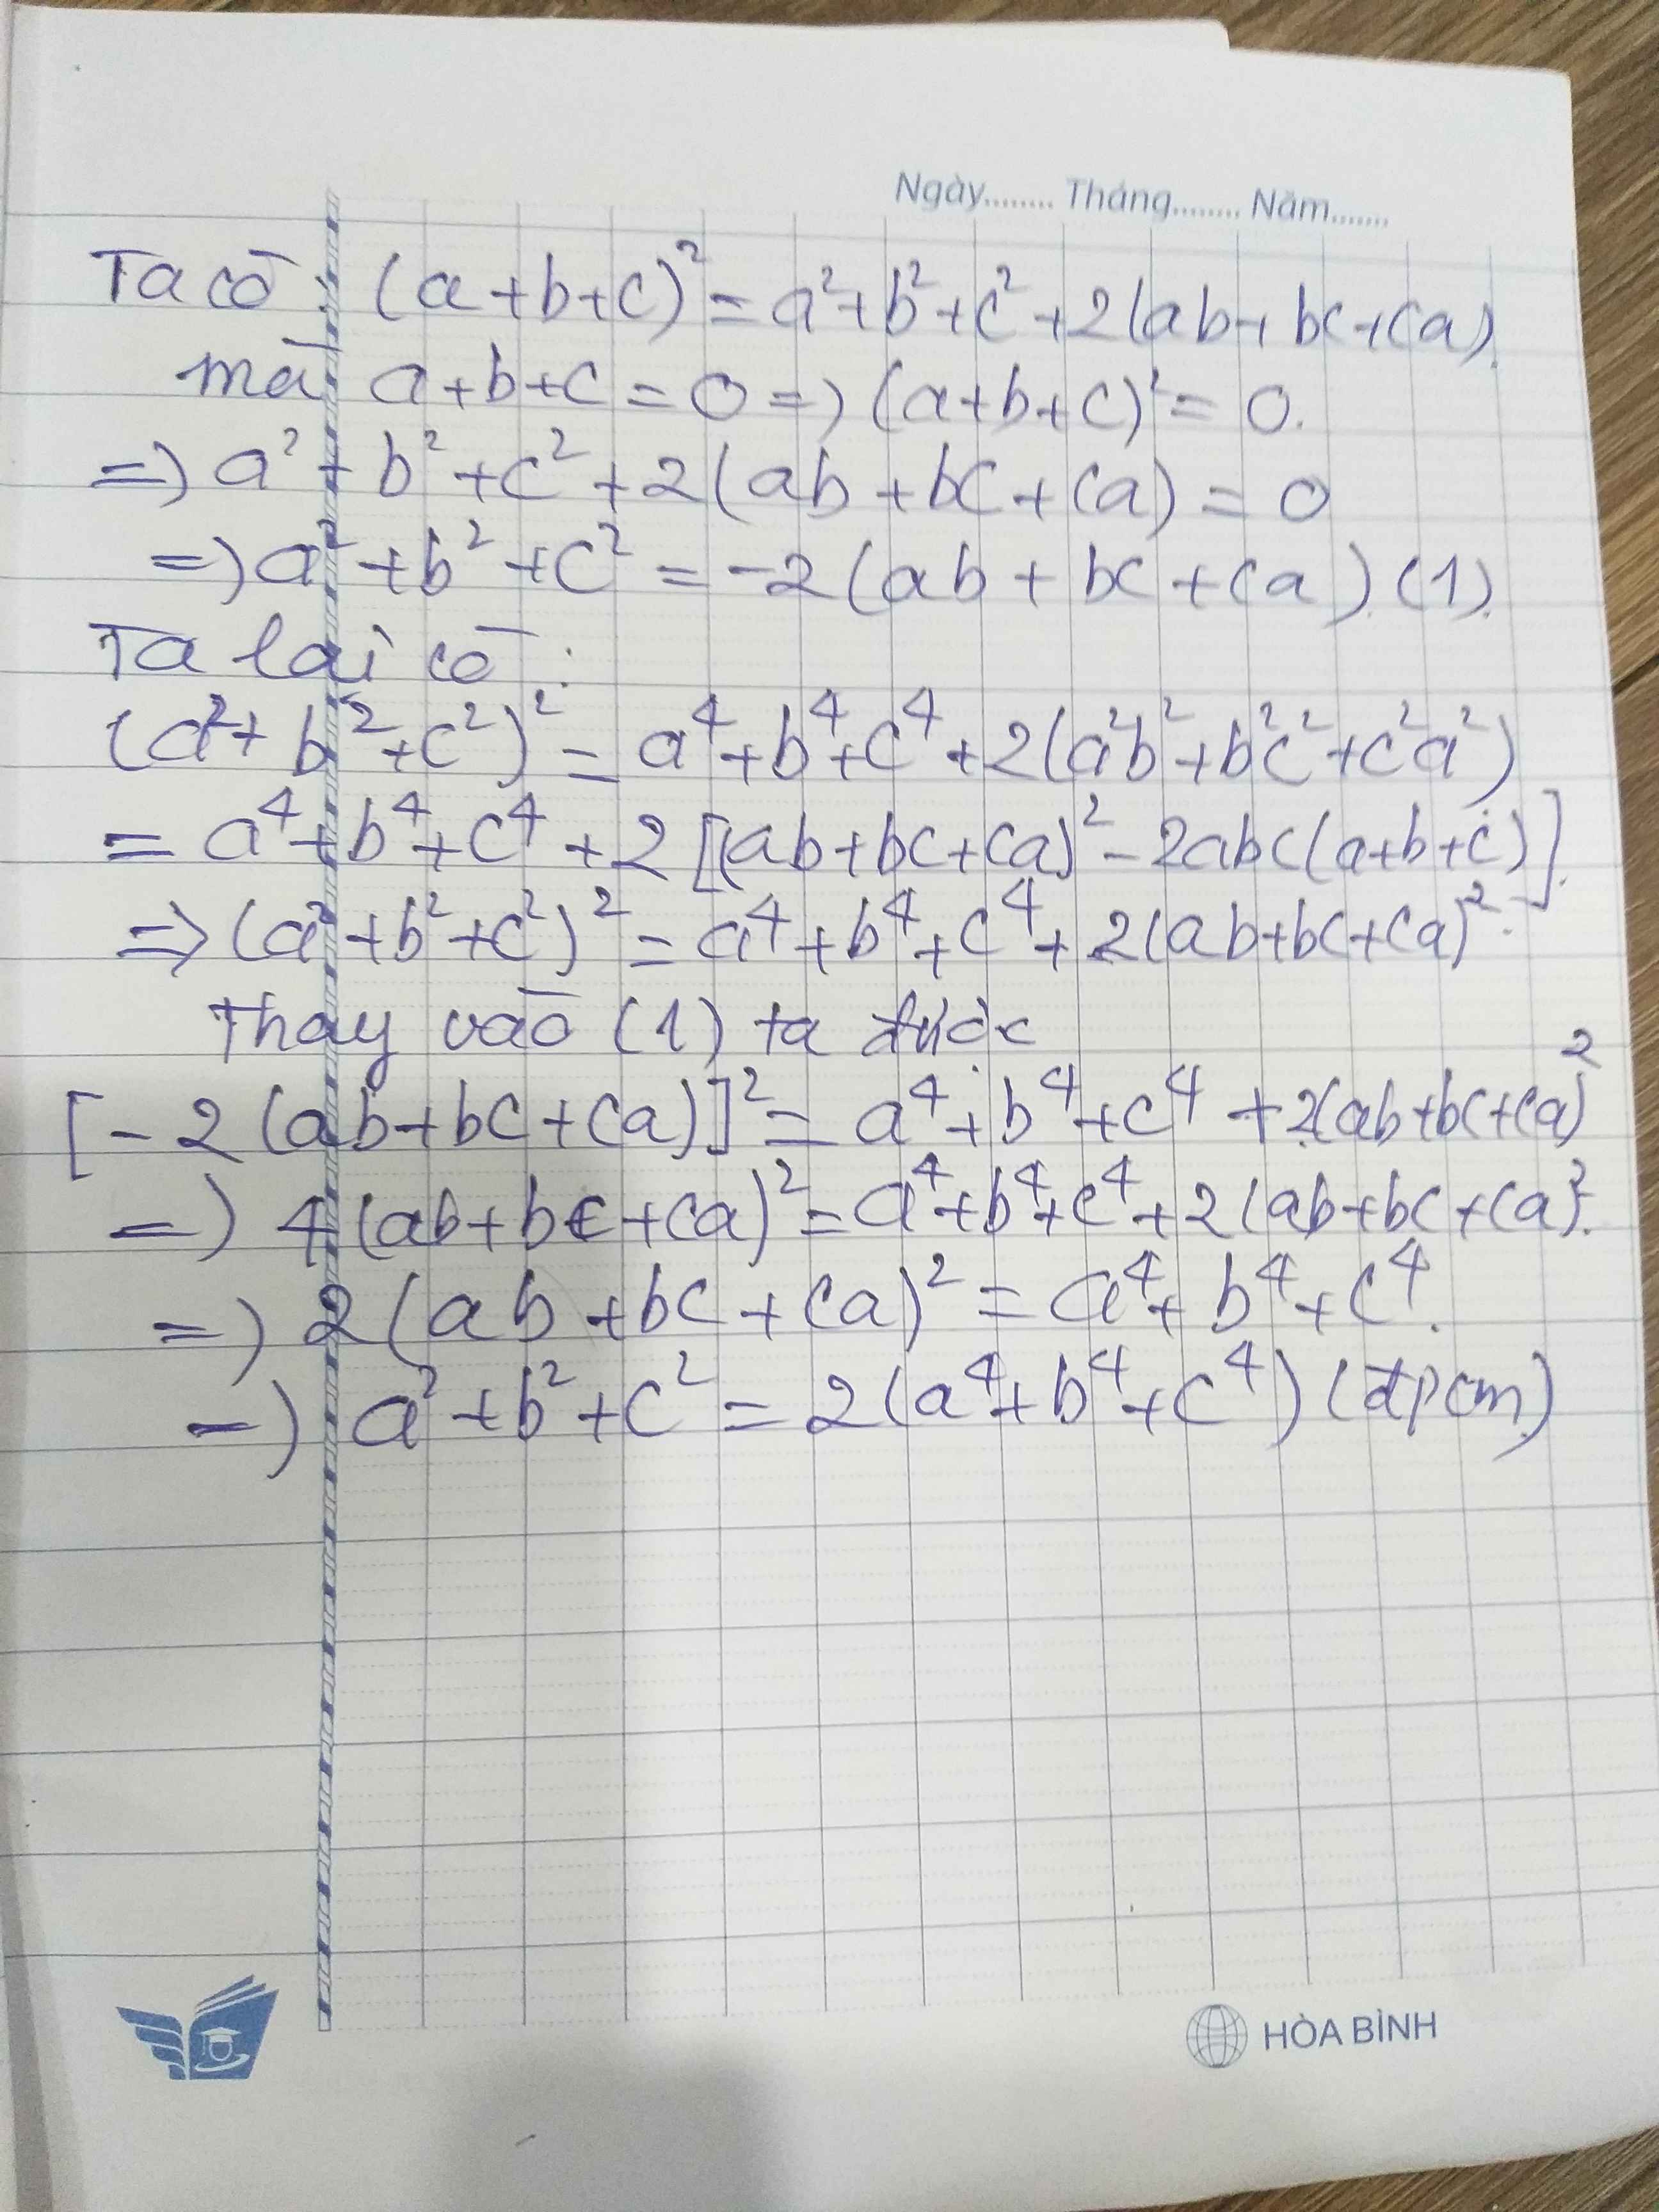 Ngày........ Tháng........ Năm.......
Ta có : (a+b+c)² = a²+b²+c²+2(ab+bc+ca).
mà a+b+c = 0 => (a+b+c)² = 0.
=> a²+b²+c²+2(ab+bc+ca) = 0
=> a²+b²+c² = -2(ab+bc+ca) (1).
Ta lại có :
(a²+b²+c²)² = a⁴+b⁴+c⁴+2(a²b²+b²c²+c²a²)
= a⁴+b⁴+c⁴+2[(ab+bc+ca)²-2abc(a+b+c)].
=> (a²+b²+c²)² = a⁴+b⁴+c⁴+2(ab+bc+ca)².
Thay vào (1) ta được
[-2(ab+bc+ca)]² = a⁴+b⁴+c⁴+2(ab+bc+ca)²
=> 4(ab+bc+ca)² = a⁴+b⁴+c⁴+2(ab+bc+ca)².
=> 2(ab+bc+ca)² = a⁴+b⁴+c⁴.
=> a²+b²+c² = 2(a⁴+b⁴+c⁴) (đpcm)
HÒA BÌNH